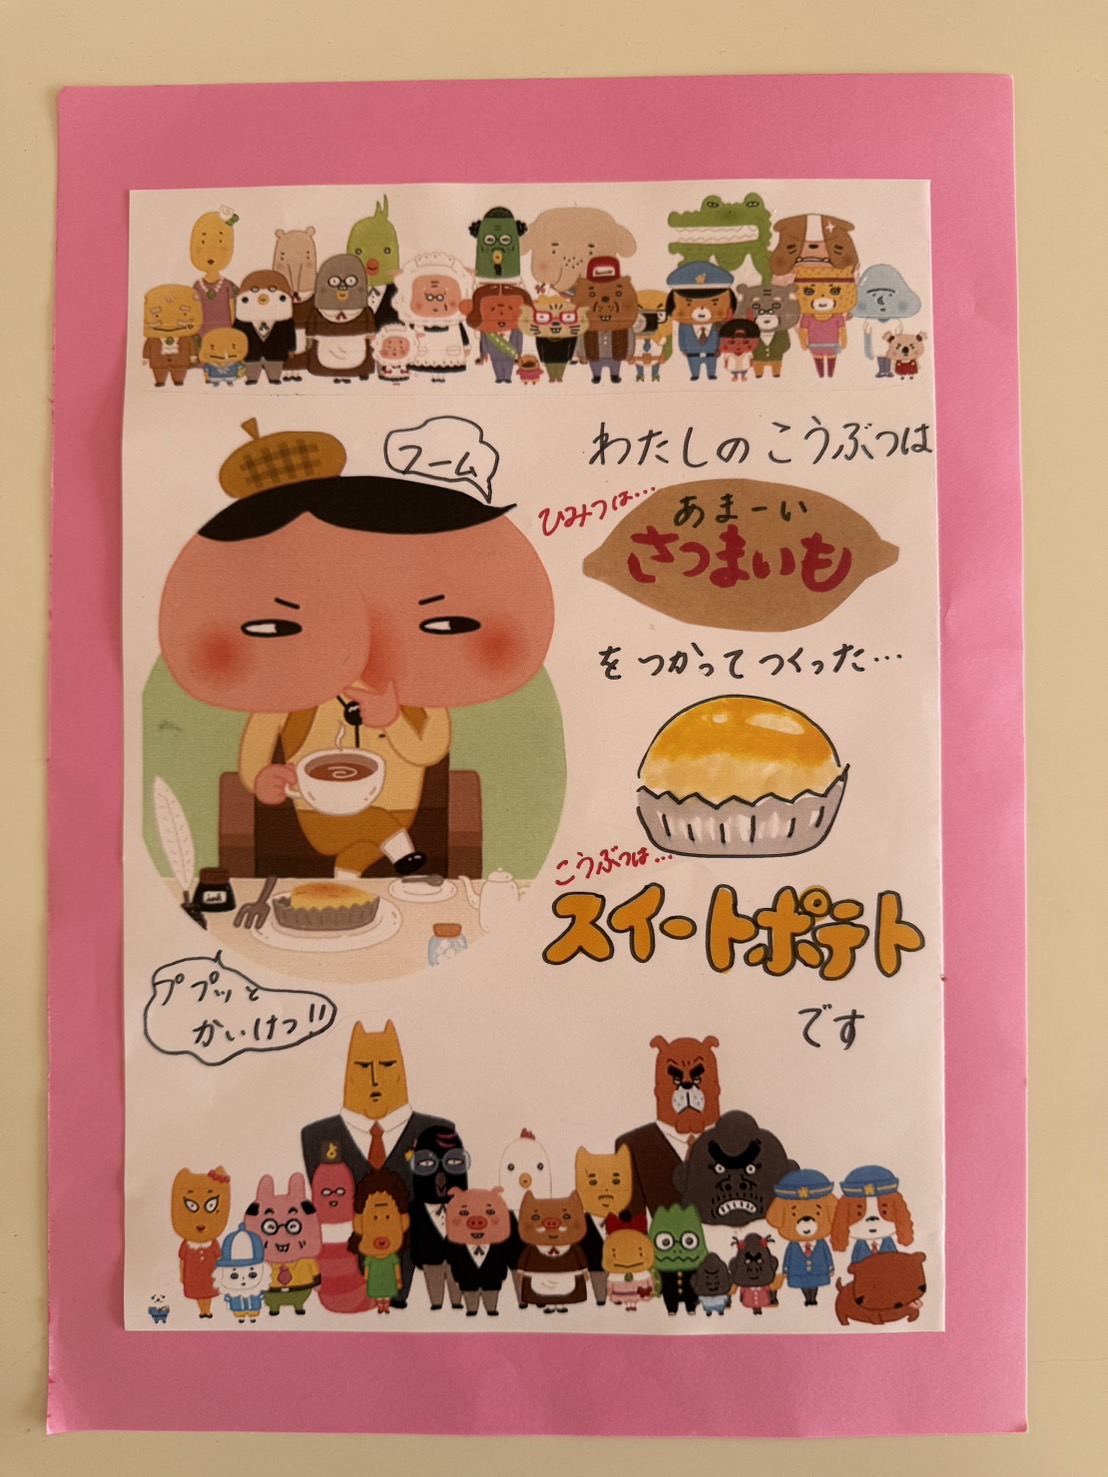 フーム
わたしの こうぶつは
ひみつは…
あまーい
さつまいも
を つかって つくった…
こうぶつは…
スイートポテト
ププッと
かいけつ!!
です